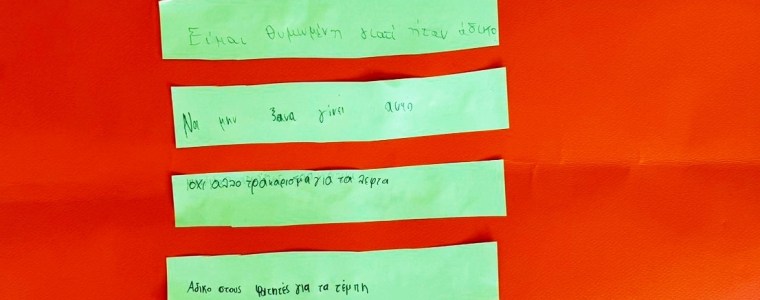 Είμαι θυμωμένη γιατί ήταν άδικο
Να μην ξανα γίνει αυτο
οχι αλλο τρακαρισμα για τα λεφτα
Αδικο στους φοιτητές για τα τέμπη